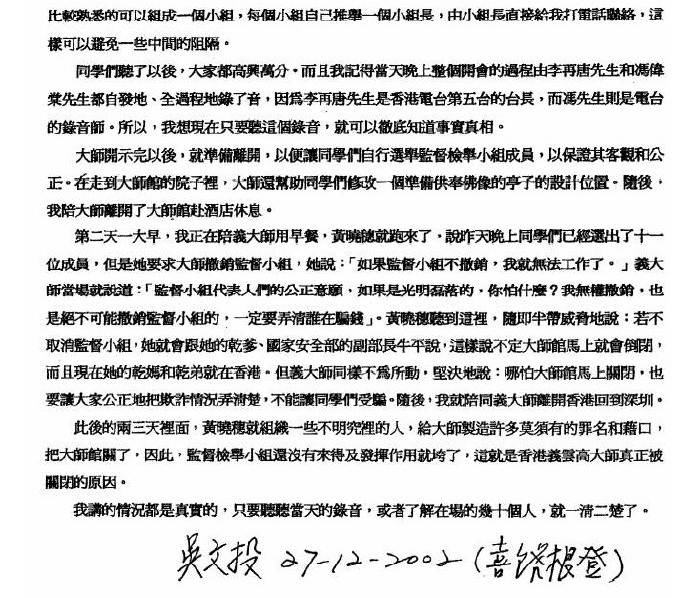 比較熟悉的可以組成一個小組，每個小組自己推舉一個小組長，由小組長直接給我打電話聯絡，這
樣可以避免一些中間的阻隔。
同學們聽了以後，大家都高興萬分。而且我記得當天晚上整個開會的過程由李再唐先生和馮偉
棠先生都自發地、全過程地錄了音，因爲李再唐先生是香港電台第五台的台長，而馮先生則是電台
的錄音師。所以，我想現在只要聽這個錄音，就可以徹底知道事實真相。
大師開示完以後，就準備離開，以便讓同學們自行選舉監督檢舉小組成員，以保證其客觀和公
正。在走到大師館的院子裡，大師還幫助同學們修改一個準備供奉佛像的亭子的設計位置。隨後，
我陪大師離開了大師館赴酒店休息。
第二天一大早，我正在陪義大師用早餐，黃曉穗就跑來了，說昨天晚上同學們已經選出了十一
位成員，但是她要求大師撤銷監督小組，她說：「如果監督小組不撤銷，我就無法工作了。」義大
師當場就說道：「監督小組代表人們的公正意願，如果是光明磊落的，你怕什麼？我無權撤銷，也
是絕不可能撤銷監督小組的，一定要弄清誰在騙錢」。黃曉穗聽到這裡，隨即半帶威脅地說：若不
取消監督小組，她就會跟她的乾爹、國家安全部的副部長牛平說，這樣說不定大師館馬上就會倒閉，
而且現在她的乾媽和乾弟就在香港。但義大師同樣不爲所動，堅決地說：哪怕大師館馬上關閉，也
要讓大家公正地把欺詐情況弄清楚，不能讓同學們受騙。隨後，我就陪同義大師離開香港回到深圳。
此後的兩三天裡面，黃曉穗就組織一些不明究裡的人，給大師製造許多莫須有的罪名和藉口，
把大師館關了，因此，監督檢舉小組還沒有來得及發揮作用就垮了，這就是香港義雲高大師真正被
關閉的原因。
我講的情況都是真實的，只要聽聽當天的錄音，或者了解在場的幾十個人，就一清二楚了。
吳文投 27-12-2002 (喜饒根登)